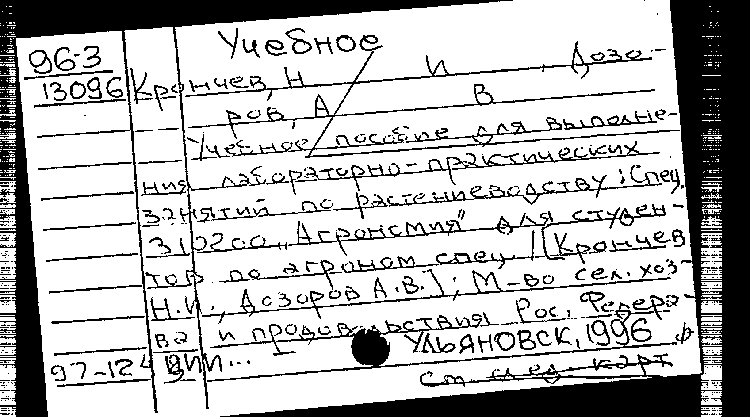 Учебное
96-3
13096 Крончев, Н И. Дозо-
ров, А В
Учебное пособие для выполне-
ния лабораторно-практических
занятий по растениеводству: Спец.
310200 „Агрономия" для студен-
тов по агроном. спец. / [Крончев
Н.И., Дозоров А.В.]; М-во сел. хоз-
ва и продовольствия Рос. Федера-
ции...
УЛЬЯНОВСК, 1996
97-124
см. след. карт.